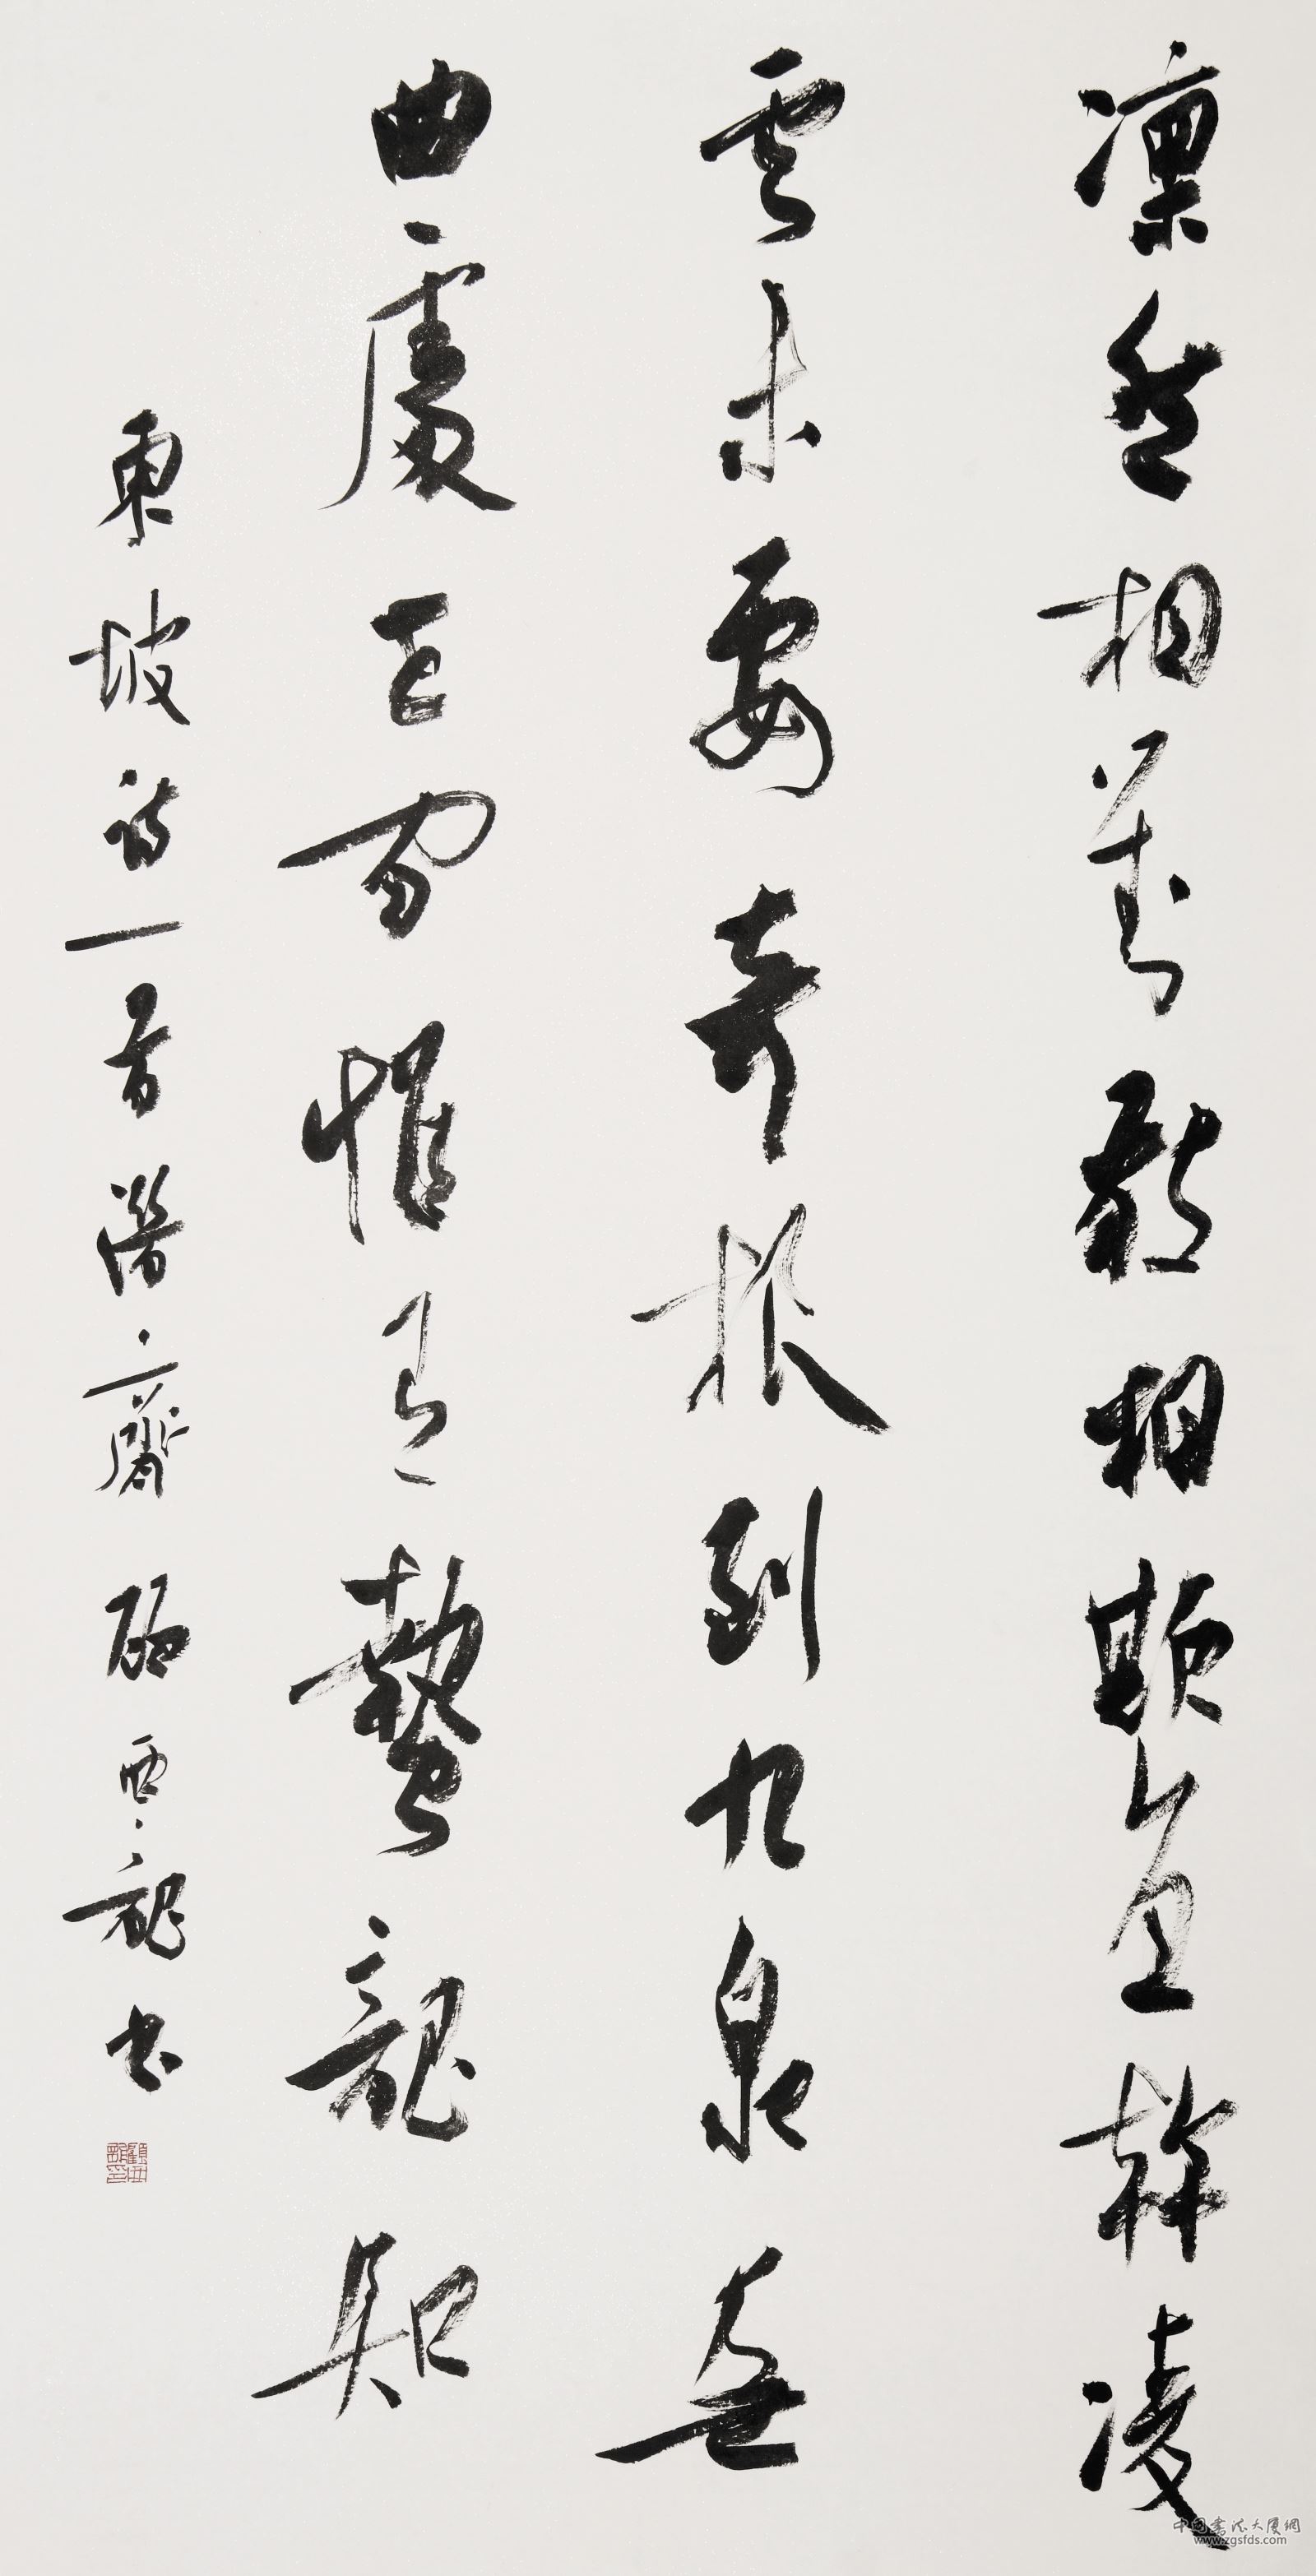 凛然相對敢相欺直幹凌
雲未要奇根到九泉無
曲處世間惟有蟄龍知
東坡詩一首潛齋顧西龍書
顧西龍印
中国書法大厦網
www.zgsfds.com